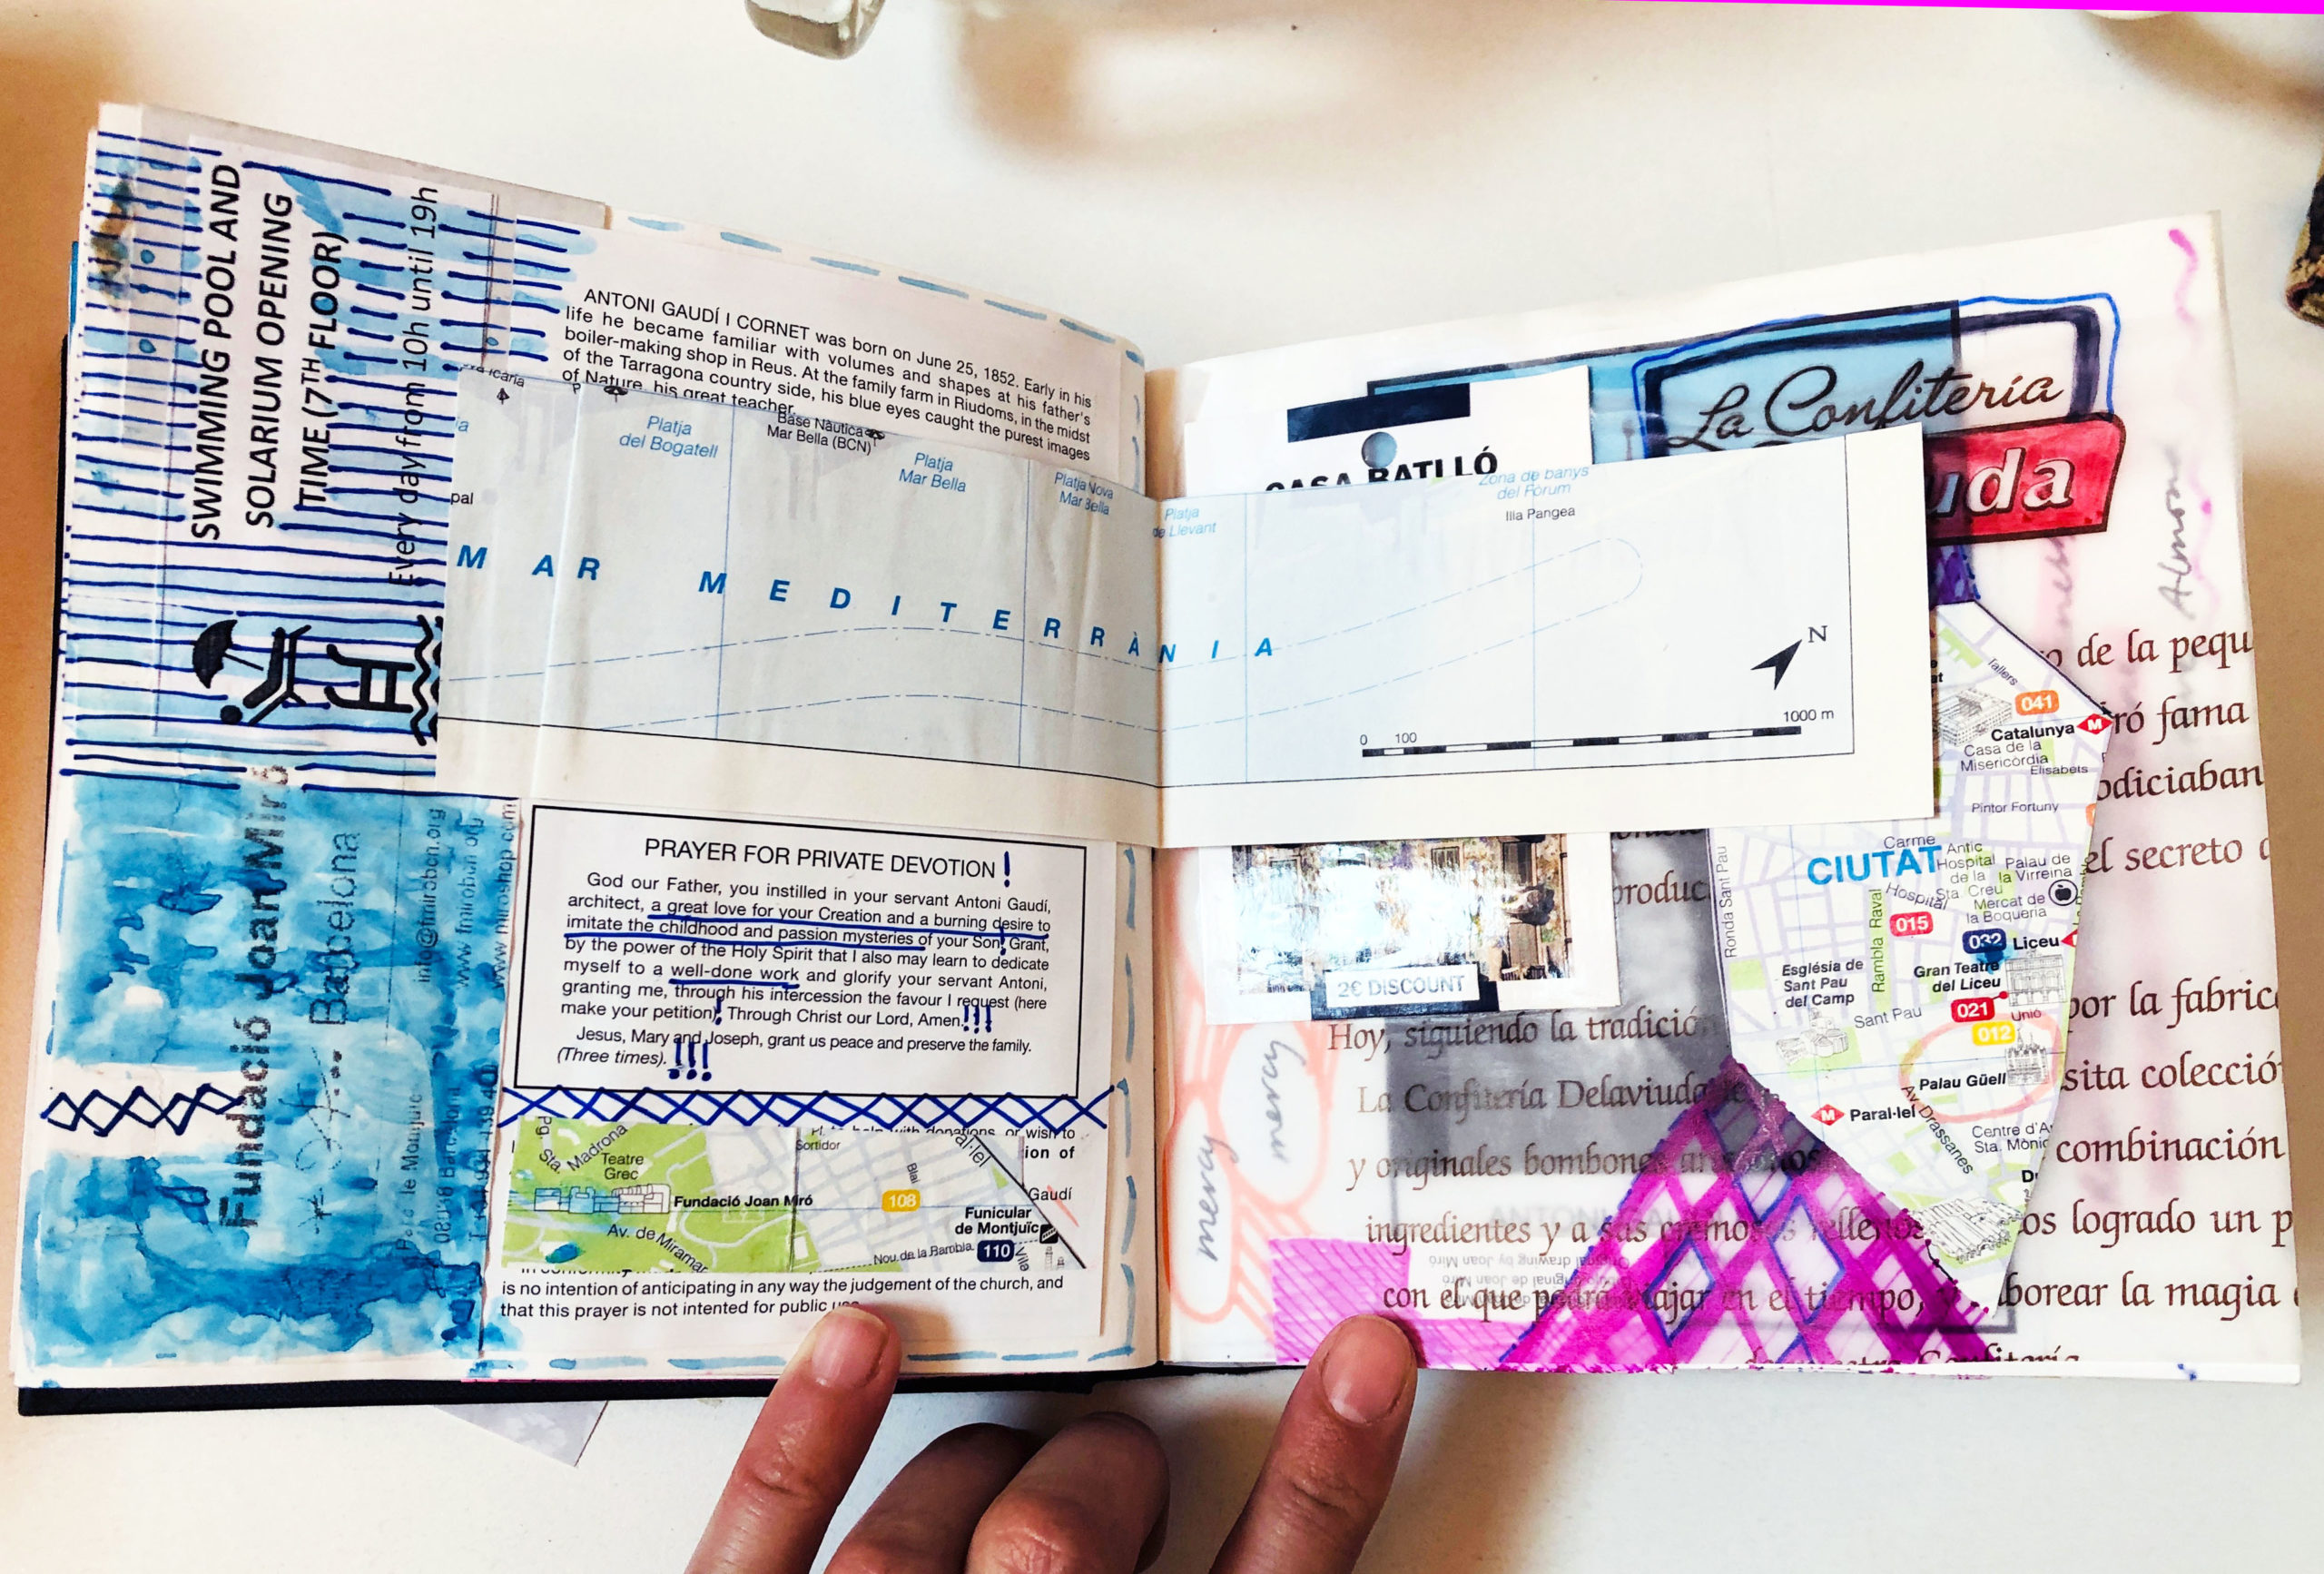 SWIMMING POOL AND
SOLARIUM OPENING
TIME (7TH FLOOR)
Every day from 10h until 19h
Fundació Joan Miró
Barcelona
info@fmirobcn.org
www.fmirobcn.org
www.miroshop.com
ANTONI GAUDÍ I CORNET was born on June 25, 1852. Early in his
life he became familiar with volumes and shapes at his father's
boiler-making shop in Reus. At the family farm in Riudoms, in the midst
of the Tarragona country side, his blue eyes caught the purest images
of Nature, his great teacher.
icaria
Platja
del Bogatell
Base Nàutica
Mar Bella (BCN)
Platja
Mar Bella
Platja Nova
Mar Bella
Platja
de Llevant
Zona de banys
del Fòrum
Illa Pangea
pal
MAR MEDITERRÀNIA
N
0 100 1000 m
PRAYER FOR PRIVATE DEVOTION!
God our Father, you instilled in your servant Antoni Gaudí,
architect, a great love for your Creation and a burning desire to
imitate the childhood and passion mysteries of your Son! Grant,
by the power of the Holy Spirit that I also may learn to dedicate
myself to a well-done work and glorify your servant Antoni,
granting me, through his intercession the favour I request (here
make your petition)! Through Christ our Lord, Amen.!!!
Jesus, Mary and Joseph, grant us peace and preserve the family.
(Three times). !!!
with donations, or wish to
ion of
Gaudí
Pg.
Sta. Madrona
Teatre
Grec
Fundació Joan Miró
Av. de Miramar
Sortidor
Blai
al·lel
108
Funicular
de Montjuïc
Nou de la Rambla
110
Vila
is no intention of anticipating in any way the judgement of the church, and
that this prayer is not intented for public
La Confitería
uda
CASA BATLLÓ
2€ DISCOUNT
mercy
mercy
Almon
de la pequ
ró fama
odiciaban
el secreto
produc
por la fabric
Hoy, siguiendo la tradició
sita colecció
La Confitería Delaviuda
combinación
y originales bombones
ingredientes y a sus cremosos rellenos
os logrado un p
con el que podrá viajar en el tiempo, y
borear la magia
Original drawing by Joan Miró
Tallers
041
Catalunya
M
Casa de la
Misericòrdia
Elisabets
Pintor Fortuny
Carme
CIUTAT
Antic
Hospital
de la
Sta. Creu
Palau de
la Virreina
Hospital
Mercat de
la Boqueria
Ronda Sant Pau
Rambla Raval
015
032
Liceu
Església de
Sant Pau
del Camp
Gran Teatre
del Liceu
Sant Pau
021
Unió
012
Palau Güell
M
Paral·lel
Av. Drassanes
Centre d'A
Sta. Mònic